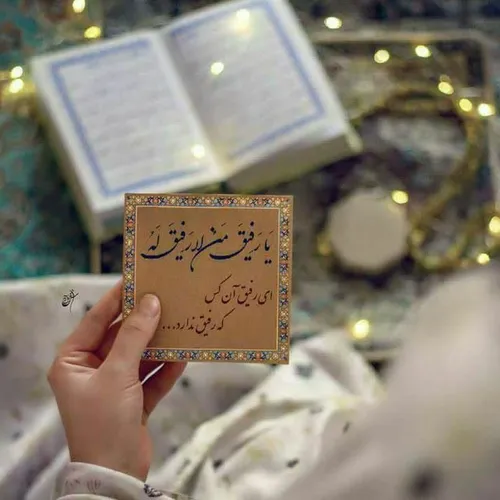 يَا رَفِيقَ مَنْ لا رَفِيقَ لَهُ
ای رفیق آن کس
که رفیق ندارد...